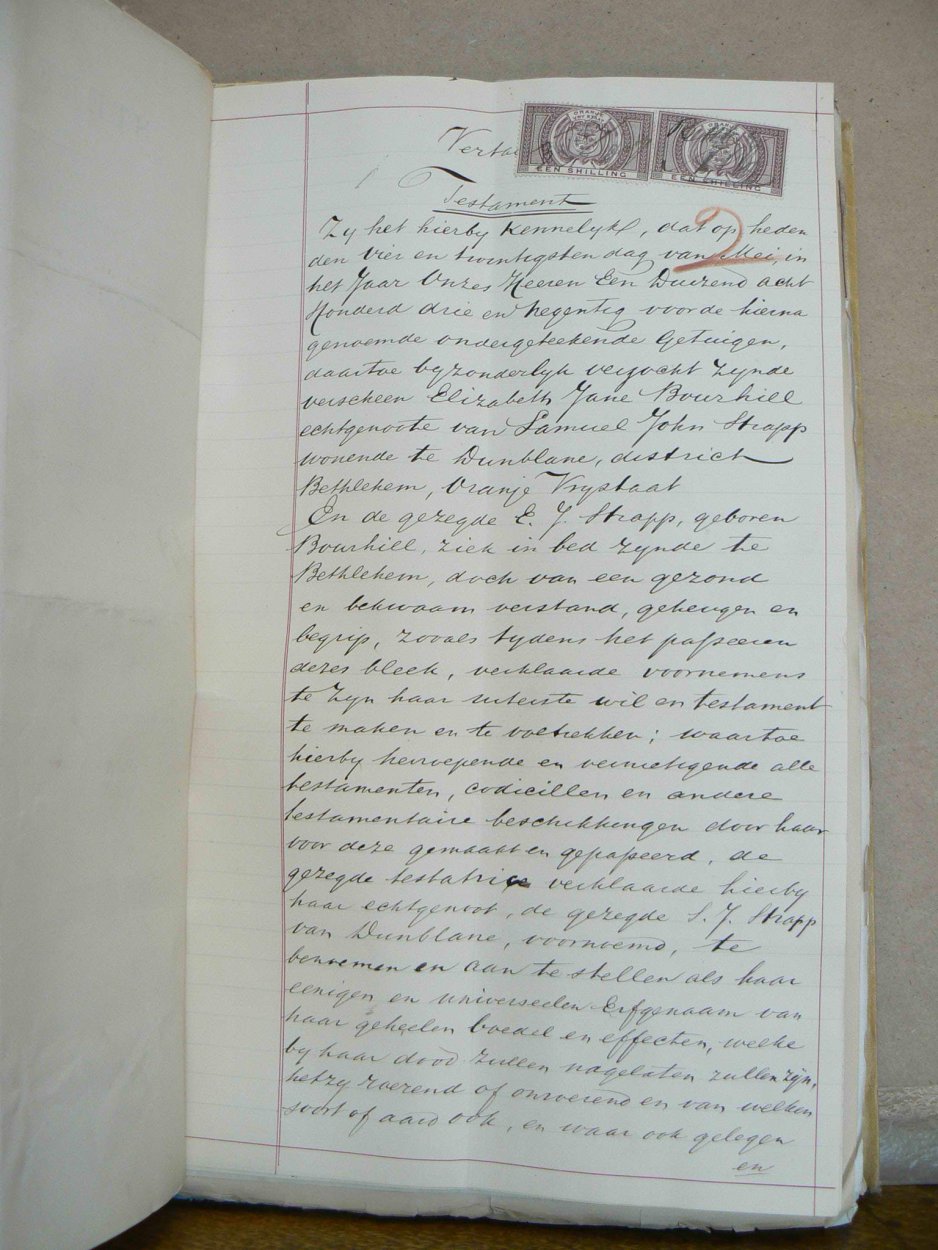 Testament
Zy het hierby Kennelyk, dat op heden
den vier en twintigsten dag van Mei, in
het Jaar Onzes Heeren Een Duizend acht
Honderd drie en Negentig voor de hierna
genoemde ondergeteekende Getuigen,
daartoe byzonderlyk verzocht zynde
verscheen Elizabeth Jane Bourhill
echtgenoote van Samuel John Strapp
wonende te Dunblane, district
Bethlehem, Oranje Vrystaat
En de gezegde E. J. Strapp, geboren
Bourhill, ziek in bed zynde te
Bethlehem, doch van een gezond
en bekwaam verstand, geheugen en
begrip, zooals tydens het passeeren
dezes bleek, verklaarde voornemens
te zyn haar uiterste wil en testament
te maken en te voltrekken; waartoe
hierby herroepende en vernietigende alle
testamenten, codicillen en andere
testamentaire beschikkingen door haar
voor deze gemaakt en gepasseerd, de
gezegde testatrice verklaarde hierby
haar echtgenoot, de gezegde S. J. Strapp
van Dunblane, voornoemd, te
benoemen en aan te stellen als haar
eenigen en universeelen Erfgenaam van
haar geheelen boedel en effecten, welke
by haar dood zullen nagelaten zullen zyn,
hetzy roerend of onroerend en van welken
soort of aard ook, en waar ook gelegen
en
2
ORANJE
EEN SHILLING
ORANJE
EEN SHILLING